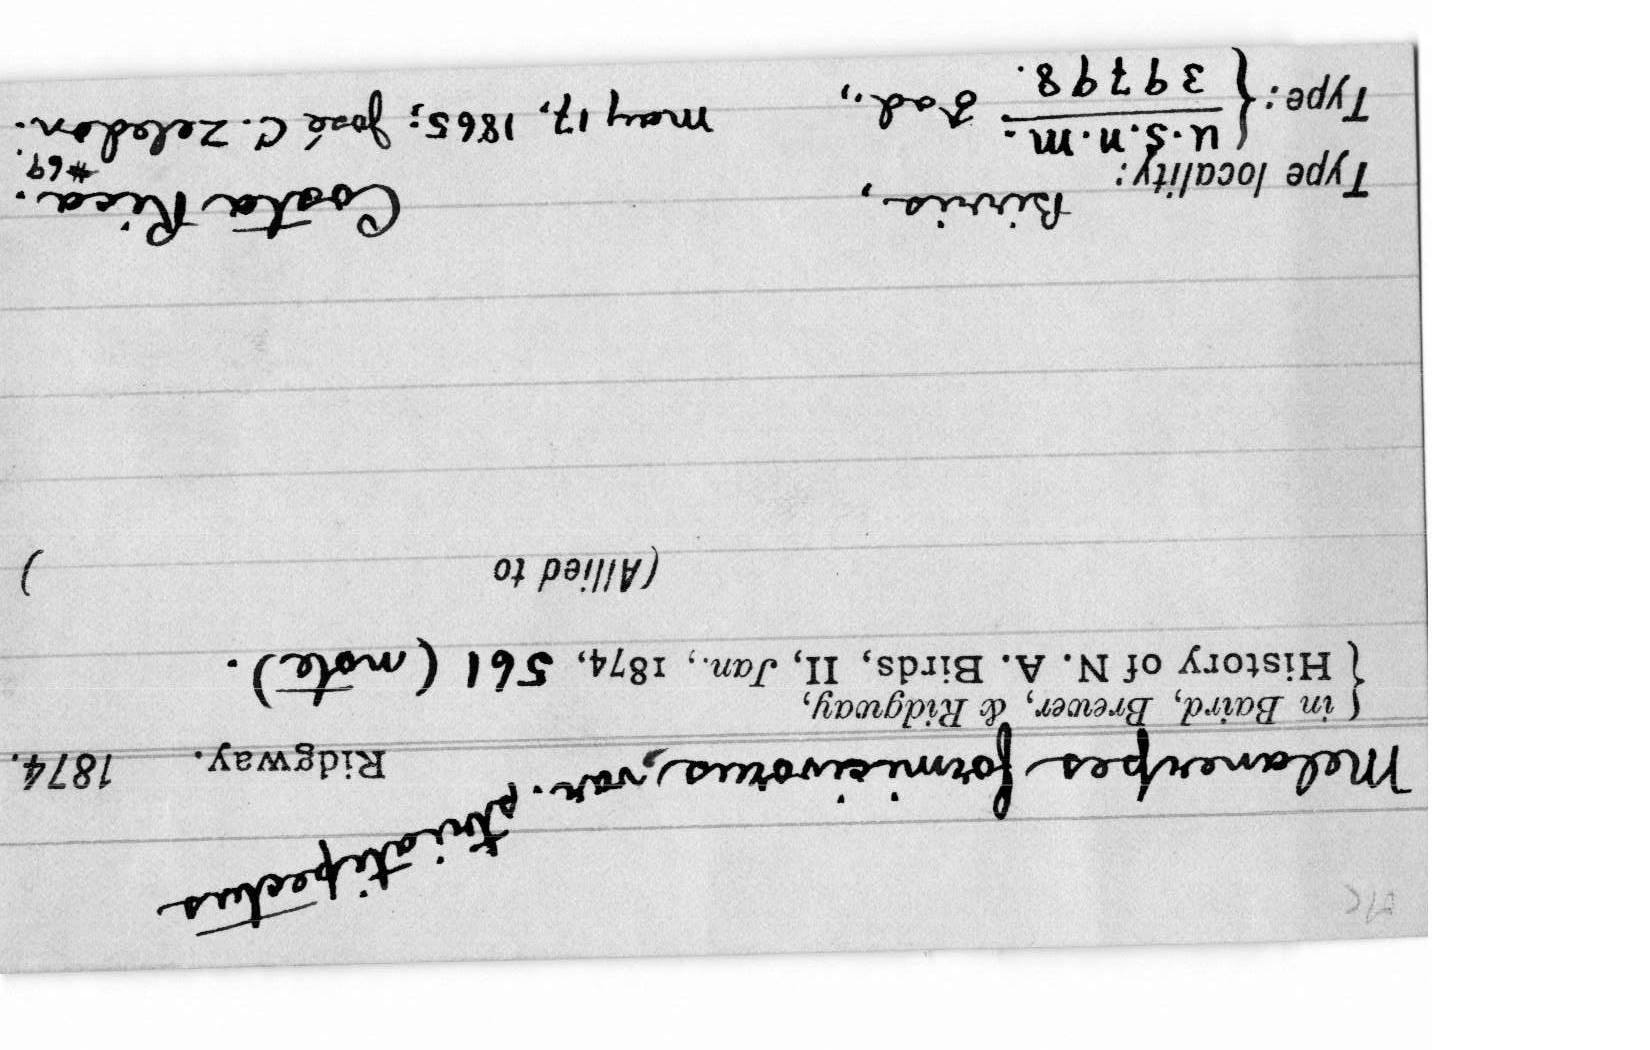 striatipectus
Melanerpes formicivorus, var. Ridgway. 1874.
{ in Baird, Brewer, & Ridgway,
{ History of N. A. Birds, II, Jan., 1874, 561 (note).
(Allied to )
Birris, Costa Rica.
Type locality: #69.
Type: { U.S.N.M. ♂ ad., May 17, 1865; José C. Zeledon.
39798.